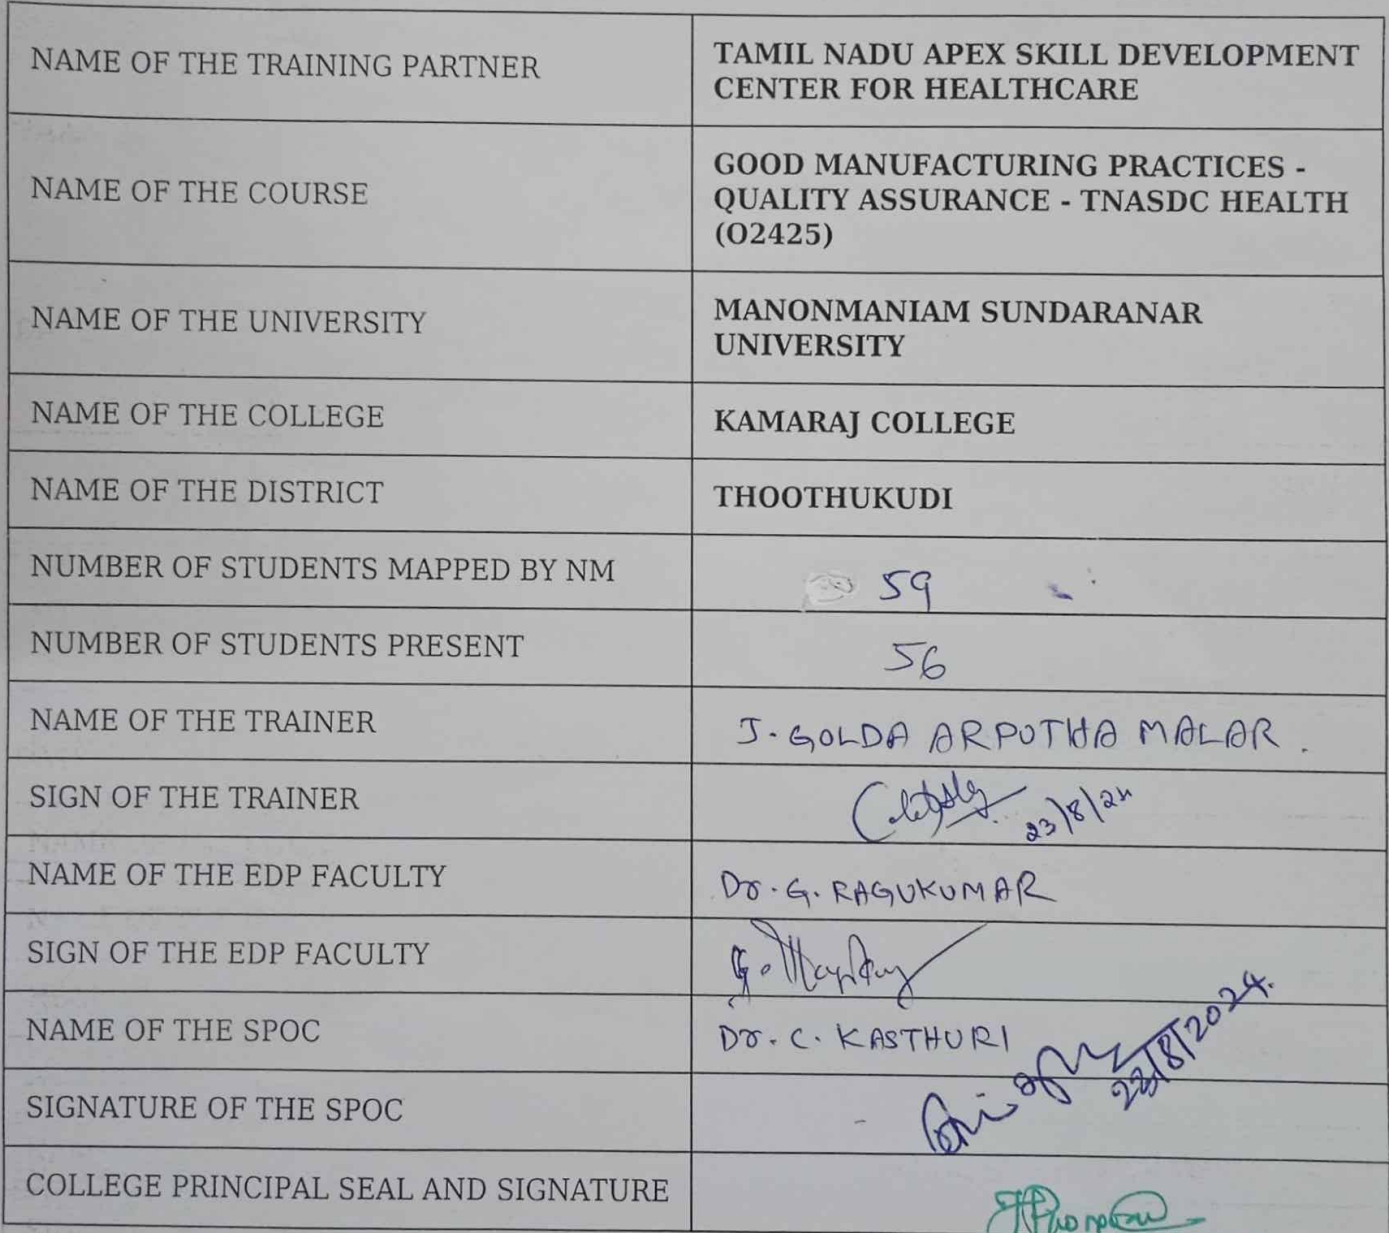 NAME OF THE TRAINING PARTNER
TAMIL NADU APEX SKILL DEVELOPMENT
CENTER FOR HEALTHCARE
NAME OF THE COURSE
GOOD MANUFACTURING PRACTICES -
QUALITY ASSURANCE - TNASDC HEALTH
(O2425)
NAME OF THE UNIVERSITY
MANONMANIAM SUNDARANAR
UNIVERSITY
NAME OF THE COLLEGE
KAMARAJ COLLEGE
NAME OF THE DISTRICT
THOOTHUKUDI
NUMBER OF STUDENTS MAPPED BY NM
59
NUMBER OF STUDENTS PRESENT
56
NAME OF THE TRAINER
J. GOLDA ARPUTHA MALAR.
SIGN OF THE TRAINER
23/8/24
NAME OF THE EDP FACULTY
Dr. G. RAGUKUMAR
SIGN OF THE EDP FACULTY
NAME OF THE SPOC
Dr. C. KASTHURI
SIGNATURE OF THE SPOC
23/8/2024.
COLLEGE PRINCIPAL SEAL AND SIGNATURE